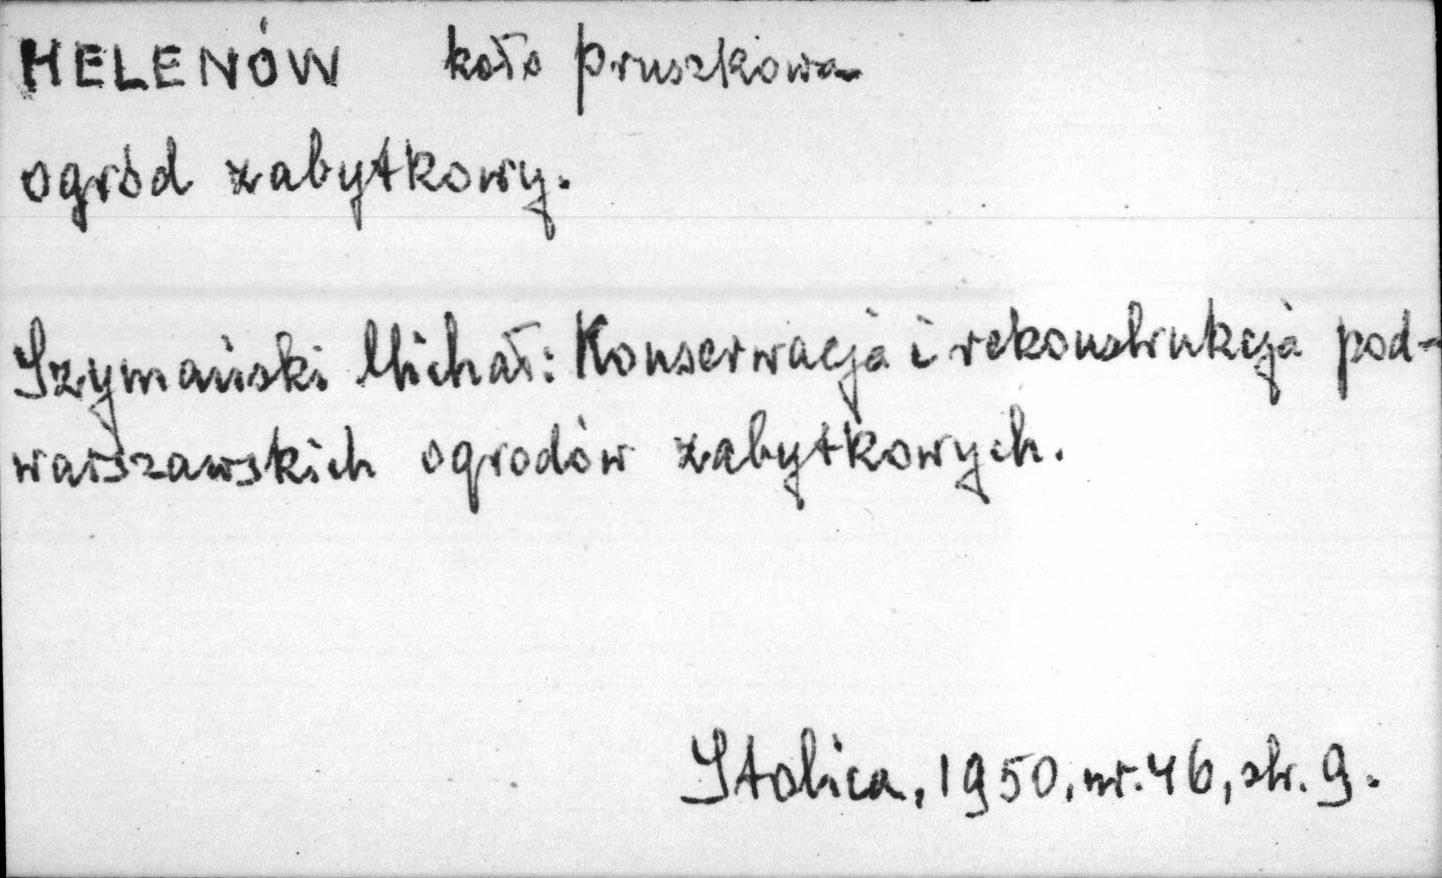 HELENÓW koło Pruszkowa
ogród zabytkowy.
Szymański Michał: Konserwacja i rekonstrukcja pod-
warszawskich ogrodów zabytkowych.
Stolica, 1950, nr. 46, str. 9.